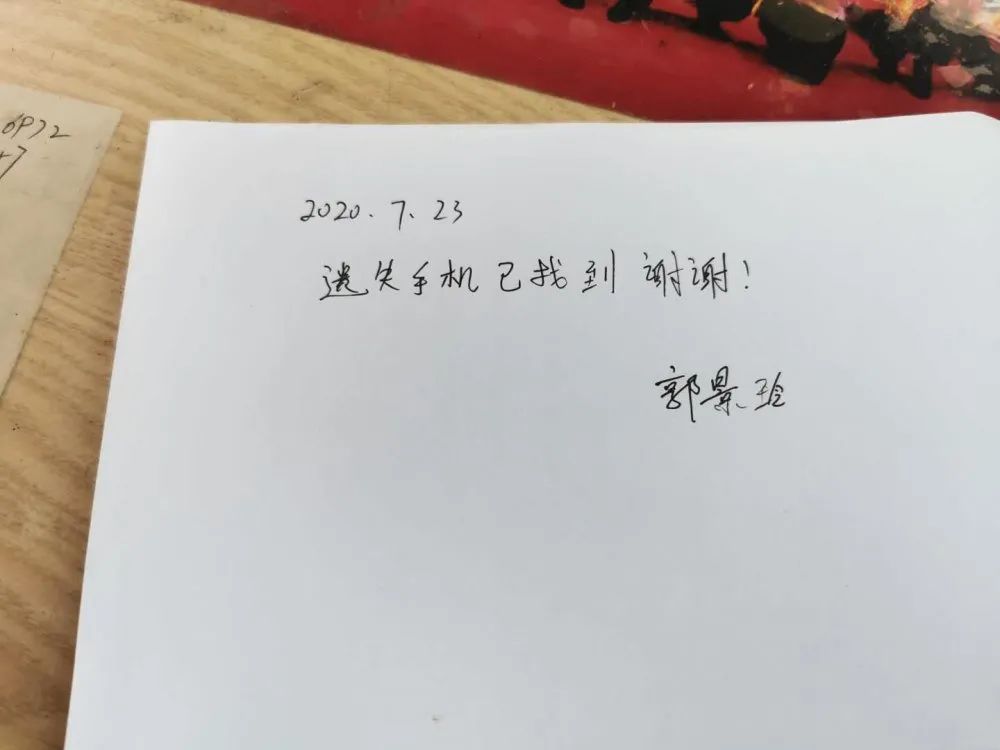 6P72
2020.7.23
遗失手机已找到 谢谢!
郭景